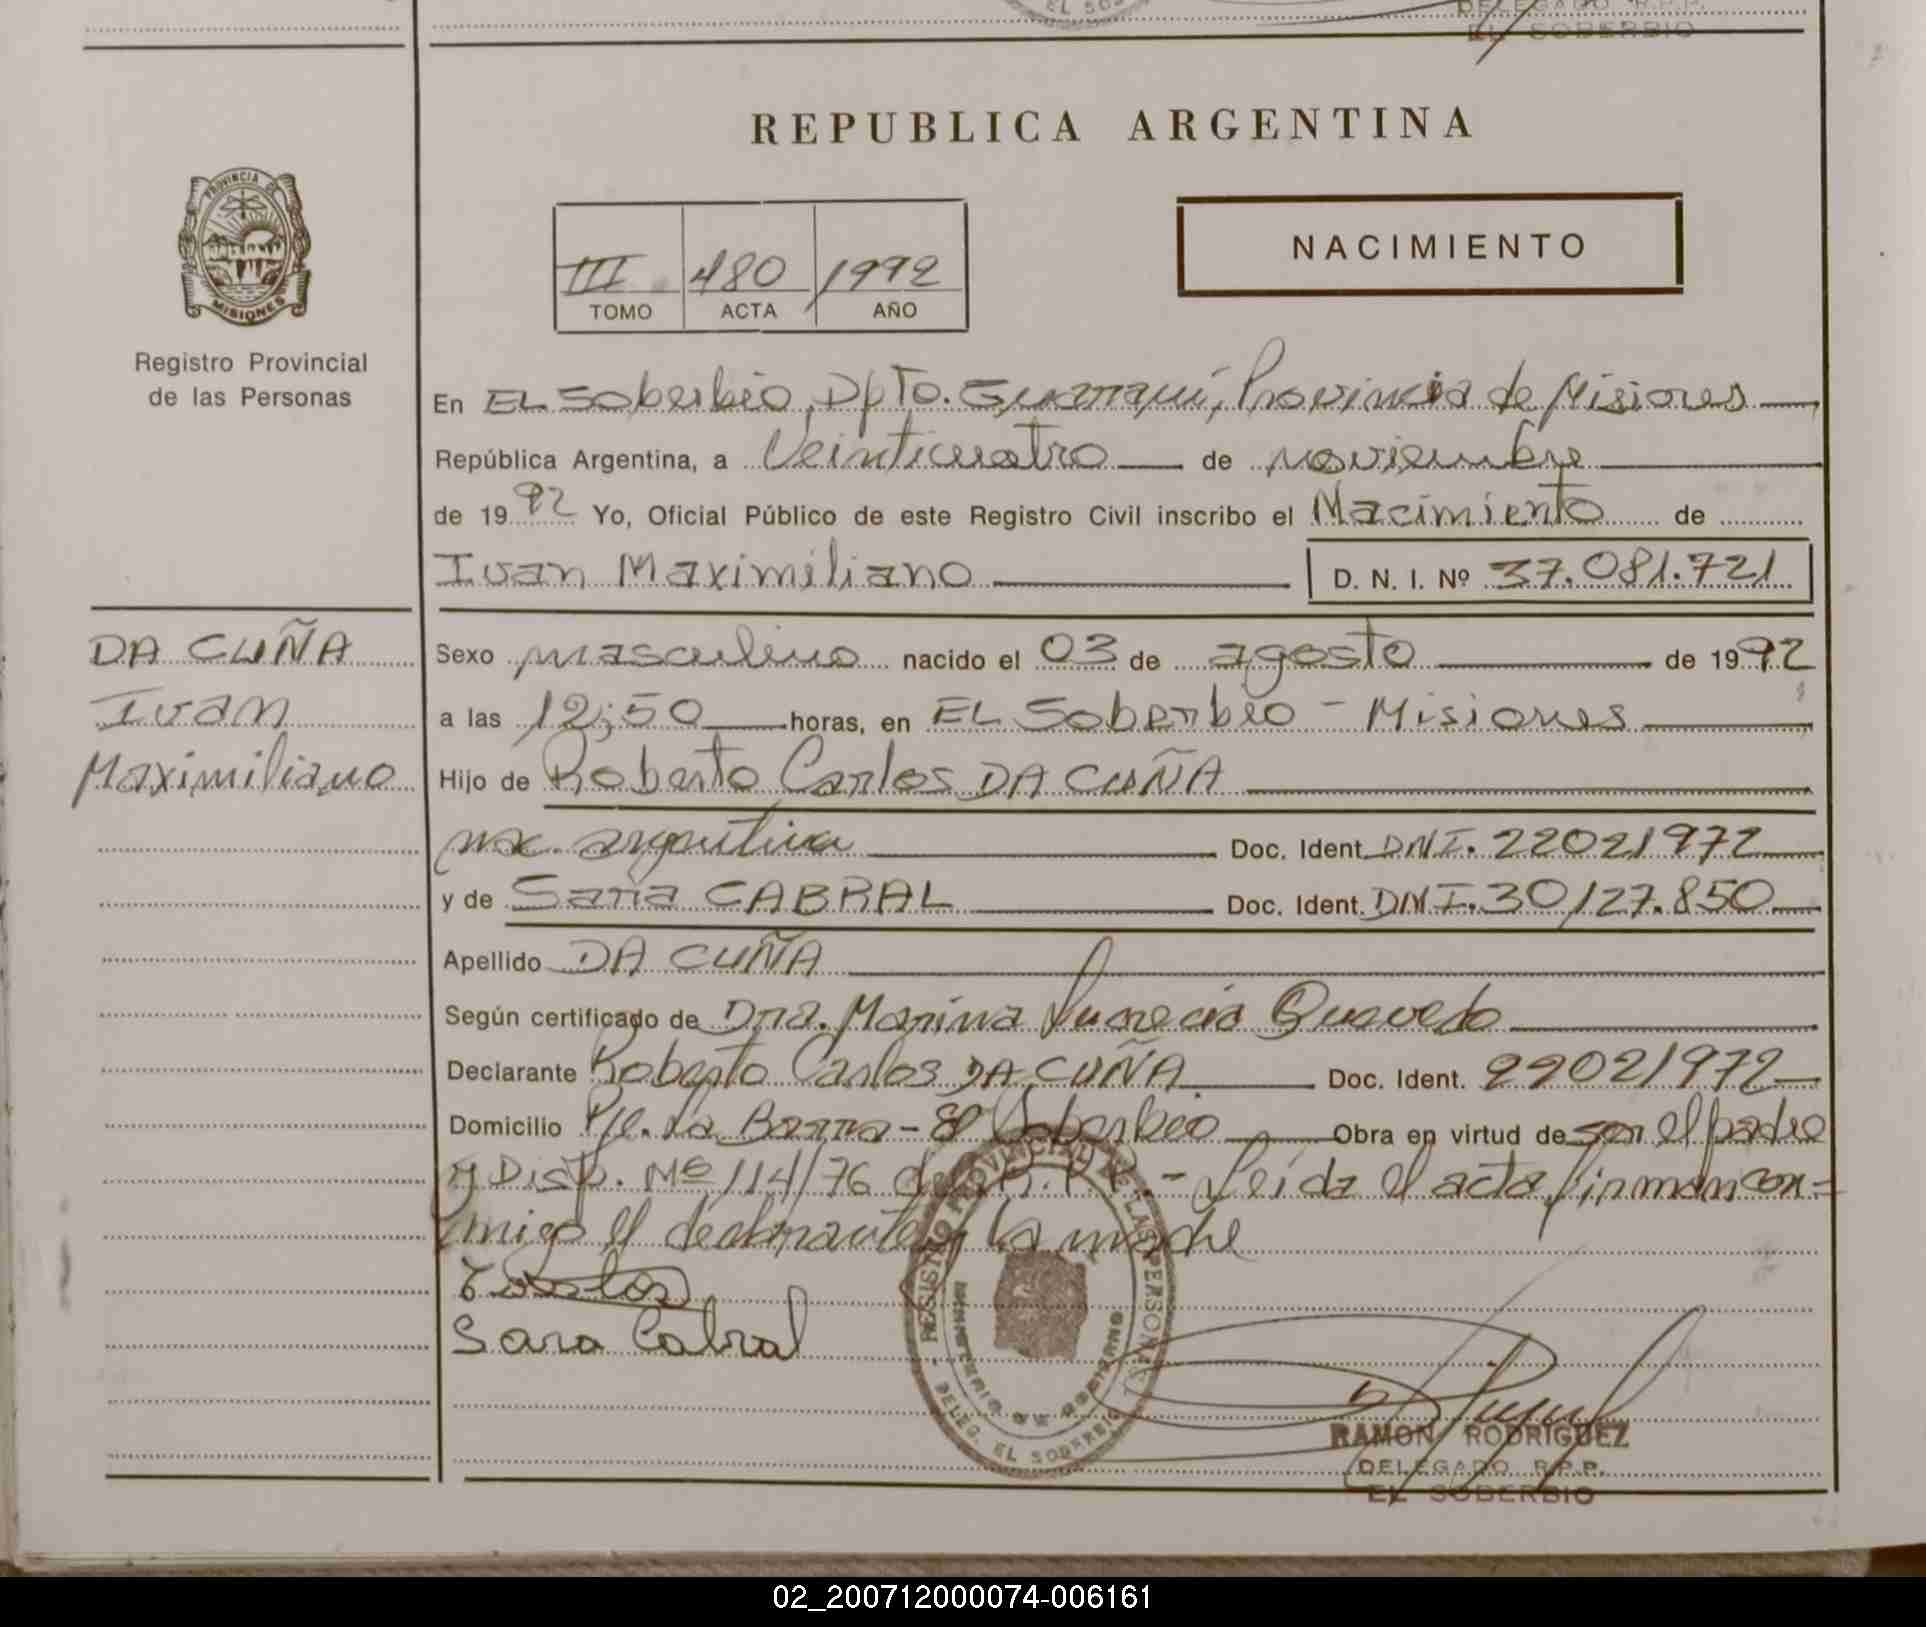 EL SOBERBIO
DELEGADO R.P.P.
EL SOBERBIO
REPUBLICA ARGENTINA
PROVINCIA DE
MISIONES
Registro Provincial
de las Personas
III 480 1992
TOMO ACTA AÑO
NACIMIENTO
En EL Soberbio, Dpto. Guaraní, Provincia de Misiones
República Argentina, a Veinticuatro de noviembre
de 1992 Yo, Oficial Público de este Registro Civil inscribo el Nacimiento de
Ivan Maximiliano D. N. I. Nº 37.081.721
DA CUÑA
Ivan
Maximiliano
Sexo masculino nacido el 03 de agosto de 1992
a las 12;50 horas, en EL Soberbio - Misiones
Hijo de Roberto Carlos DA CUÑA
nac. argentina Doc. Ident. DNI. 22021972
y de Sara CABRAL Doc. Ident. DNI. 30127.850
Apellido DA CUÑA
Según certificado de Dra. Marina Lucrecia Quevedo
Declarante Roberto Carlos DA CUÑA Doc. Ident. 22021972
Domicilio Pje. La Barra - El Soberbio Obra en virtud de ser el padre
y Disp. Nº 114/76 del R.P.P. - Leída el acta, firman con=
migo el declarante y la madre
Sara Cabral
REGISTRO PROVINCIAL DE LAS PERSONAS
MINISTERIO DE GOBIERNO
DELEG. EL SOBERBIO
RAMON RODRIGUEZ
DELEGADO R.P.P.
EL SOBERBIO
02_200712000074-006161